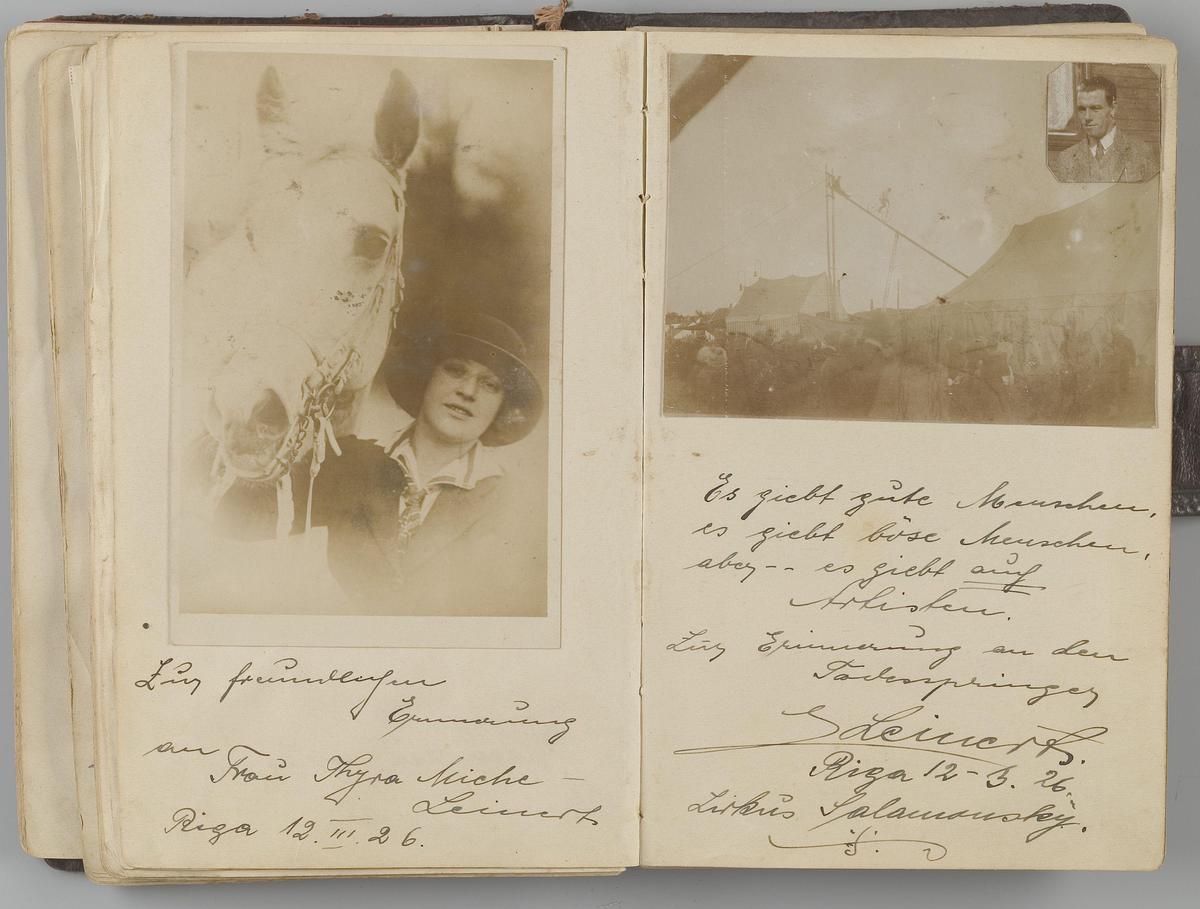 Zur freundlichen
Erinnerung
an
Frau Thyra Miche -
Leinert
Riga 12. III. 26.
Es giebt gute Menschen,
es giebt böse Menschen,
aber -- es giebt auch
Artisten.
Zur Erinnerung an den
Todesspringer
Leinert.
Riga 12 - 3. 26.
Zirkus Salamonsky.